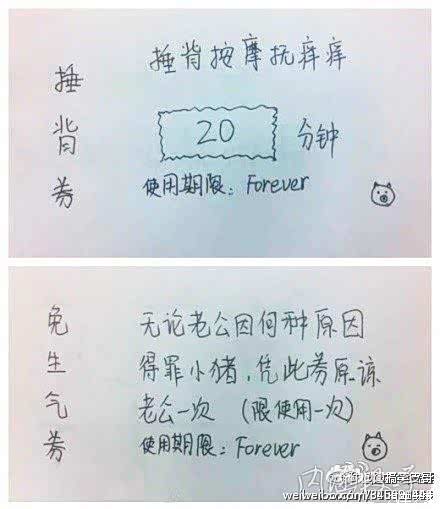 捶背券
捶背按摩抚痒痒
20 分钟
使用期限: Forever
免生气券
无论老公因何种原因
得罪小猪,凭此券原谅
老公一次 (限使用一次)
使用期限: Forever